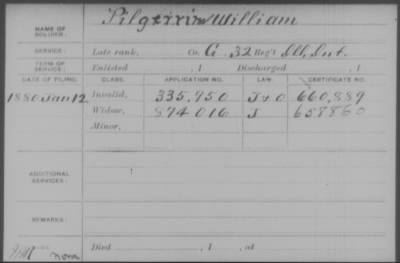 NAME OF SOLDIER: Pilgrim William
SERVICE: Late rank, Co. G. 32 Reg't Ill. Inf.
TERM OF SERVICE: Enlisted , 1 Discharged , 1
DATE OF FILING. CLASS. APPLICATION NO. LAW. CERTIFICATE NO.
1880 Jan 12 Invalid, 335,950 J+O 660,889
Widow, 874016 J 658860
Minor,
ADDITIONAL SERVICES:
REMARKS:
Died , 1 , at